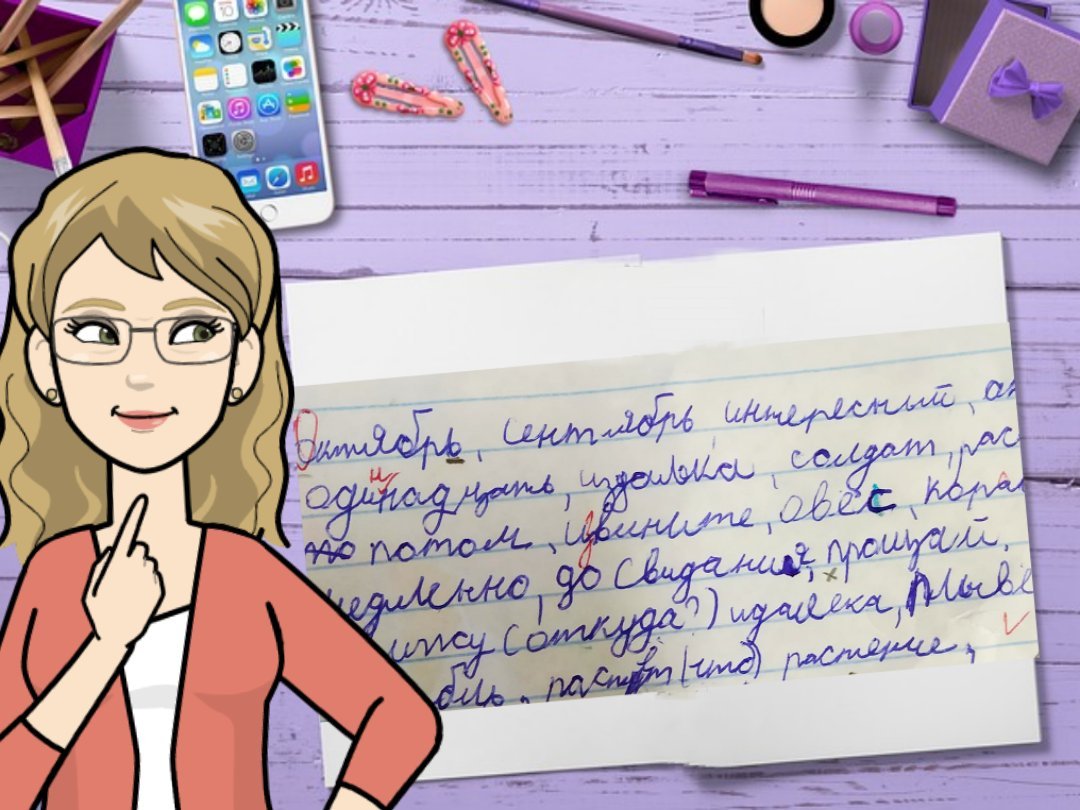 Октябрь, сентябрь, интересный,
одинадцать, издалька, солдат, рас
потом, извините, овёс, кора
медленно, до свидания, прощай.
(откуда?) издалека, плывё
растёт (что) растение,